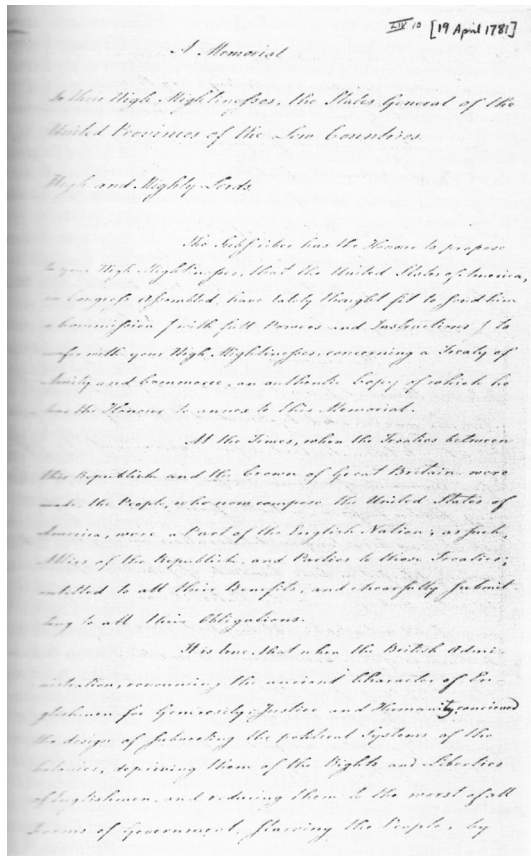 LIV 10 [19 April 1781]
A Memorial
To their High Mightinesses, the States General of the
United Provinces of the Low Countries.
High and Mighty Lords
The Subscriber has the Honour to propose
to your High Mightinesses, that the United States of America,
in Congress Assembled, have lately thought fit to send him
a Commission (with full Powers and Instructions) to
confer with your High Mightinesses, concerning a Treaty of
Amity and Commerce, an authentic Copy of which he
has the Honour to annex to this Memorial.
At the Times, when the Treaties between
this Republick and the Crown of Great Britain were
made, the People, who now compose the United States of
America, were a Part of the English Nation; as such,
Allies of the Republick, and Parties to those Treaties;
entitled to all their Benefits, and chearfully submit-
ting to all their Obligations.
It is true, that when the British Admi-
nistration, renouncing the ancient Character of En-
glishmen for Generosity, Justice and Humanity, conceived
the design of subverting the political Systems of the
Colonies, depriving them of the Rights and Liberties
of Englishmen, and reducing them to the worst of all
Forms of Government, starving the People, by